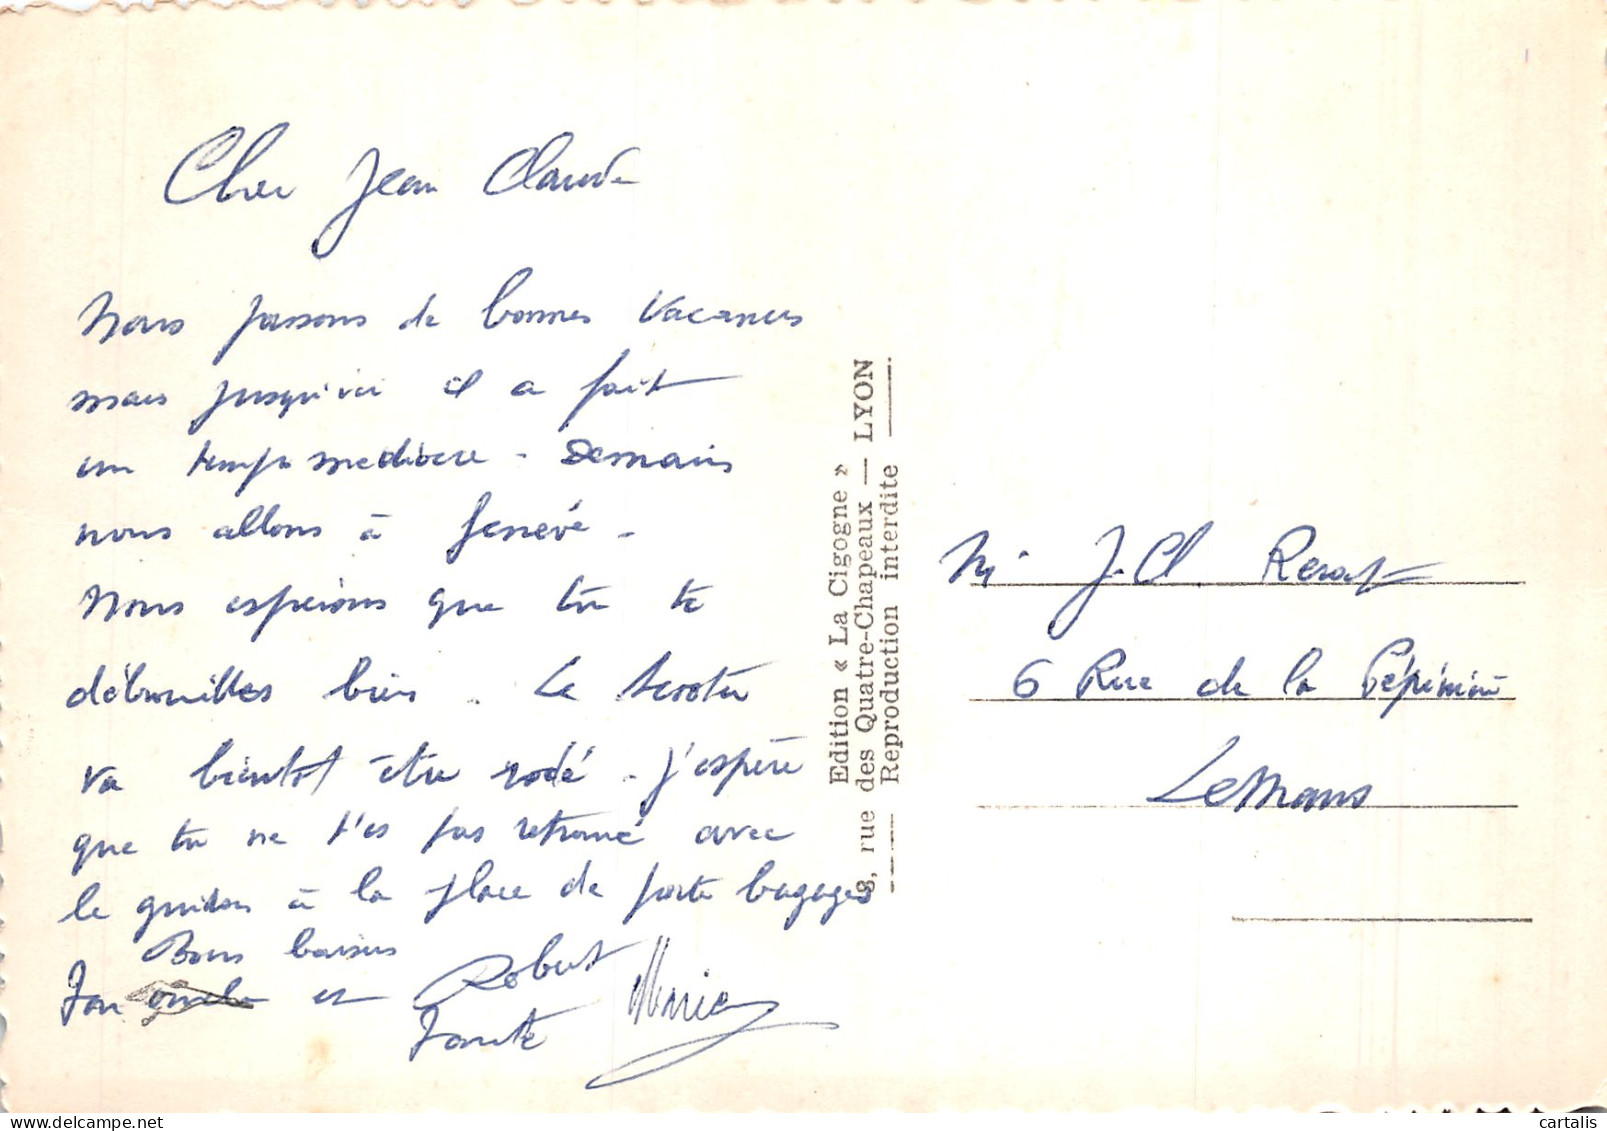 Cher Jean Claude
Nous passons de bonnes vacances
mais jusqu'ici il a fait
un temps médiocre - Demain
nous allons à Genève -
Nous espérons que tu te
débouilles bien. Le scooter
va bientot être rodé - J'espère
que tu ne t'es pas retrouvé avec
le guidon à la place de porte bagages
Bons baisers
Ton oncle et Robert
Tante
Edition « La Cigogne »
rue des Quatre-Chapeaux — LYON
Reproduction interdite
M. J. Cl.
6 Rue de la Pépinière
Le Mans
cartalis